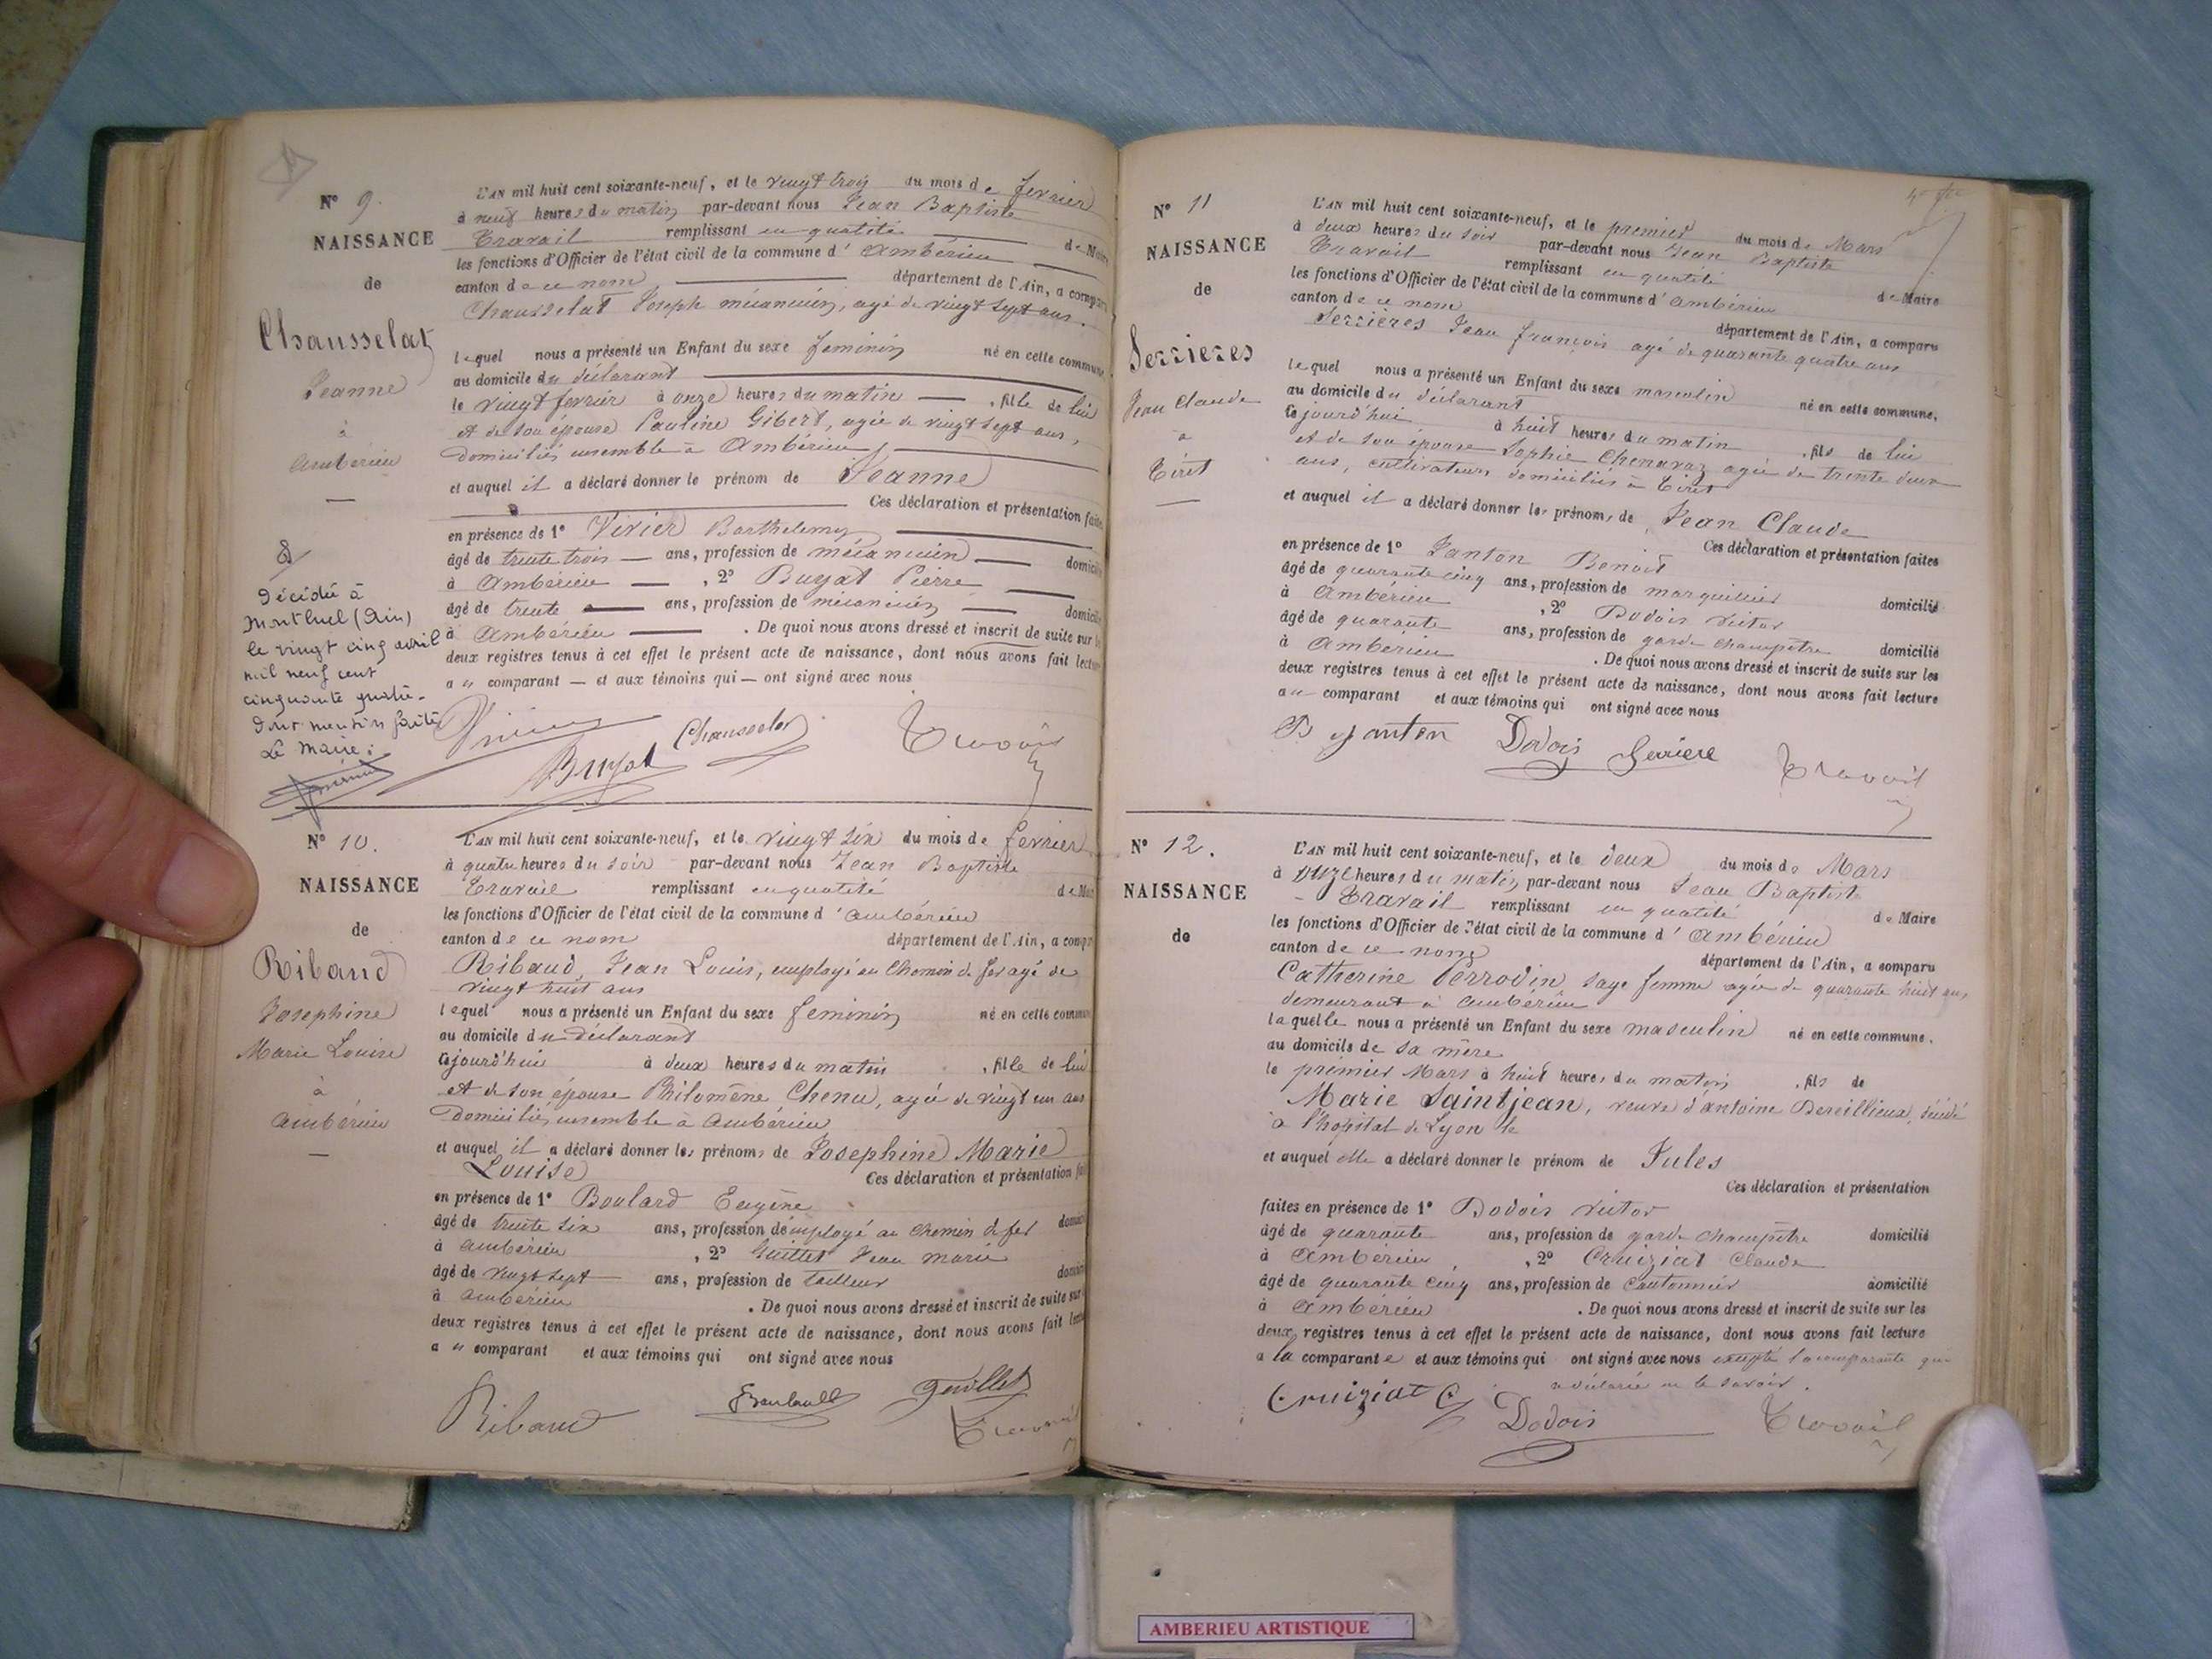 N° 9.
NAISSANCE
de
Chausselat
Jeanne
à
Ambérieu
L'AN mil huit cent soixante-neuf, et le vingt trois du mois de février
à neuf heures du matin par-devant nous Jean Baptiste
Travail remplissant en qualité de Maire
les fonctions d'Officier de l'état civil de la commune d'Ambérieu
canton de ce nom département de l'Ain, a compa
Chausselat Joseph mécanicien, agé de vingt sept ans.
lequel nous a présenté un Enfant du sexe féminin né en cette commune
au domicile du déclarant
le vingt février à onze heures du matin, fille de lui
et de son épouse Pauline Gibert, agée de vingt sept ans,
domiciliés ensemble à Ambérieu
et auquel il a déclaré donner le prénom de Jeanne
Ces déclaration et présentation faites
en présence de 1° Vivier Barthelemy
âgé de trente trois ans, profession de mécanicien domicilié
à Ambérieu, 2° Buyat Pierre
âgé de trente ans, profession de mécanicien domicilié
à Ambérieu. De quoi nous avons dressé et inscrit de suite sur les
deux registres tenus à cet effet le présent acte de naissance, dont nous avons fait lecture
au comparant et aux témoins qui ont signé avec nous
Décédée à
Montluel (Ain)
le vingt cinq avril
mil neuf cent
cinquante quatre.
Dont mention faite
Le Maire:
Buyat Chausselat Travail
N° 10.
NAISSANCE
de
Ribaud
Josephine
Marie Louise
à
Ambérieu
L'AN mil huit cent soixante-neuf, et le vingt six du mois de février
à quatre heures du soir par-devant nous Jean Baptiste
Travail remplissant en qualité de Maire
les fonctions d'Officier de l'état civil de la commune d'Ambérieu
canton de ce nom département de l'Ain, a compa
Ribaud, Jean Louis, employé au Chemin de fer agé de
vingt huit ans
lequel nous a présenté un Enfant du sexe féminin né en cette commune
au domicile du déclarant
cejourd'hui à deux heures du matin, fille de lui
et de son épouse Philomène Chenu, agée de vingt un ans
domiciliés ensemble à Ambérieu
et auquel il a déclaré donner les prénoms de Josephine Marie
Louise Ces déclaration et présentation fa
en présence de 1° Boulard Eugène
âgé de trente six ans, profession d'employé au chemin de fer domici
à Ambérieu, 2° Guillet Jean Marie
âgé de vingt sept ans, profession de tailleur domici
à Ambérieu. De quoi nous avons dressé et inscrit de suite sur
deux registres tenus à cet effet le présent acte de naissance, dont nous avons fait lectu
au comparant et aux témoins qui ont signé avec nous
Ribaud Travail
N° 11
NAISSANCE
de
Serrieres
Jean Claude
à
Tiret
L'AN mil huit cent soixante-neuf, et le premier du mois de Mars
à deux heures du soir par-devant nous Jean Baptiste
Travail remplissant en qualité de Maire
les fonctions d'Officier de l'état civil de la commune d'Ambérieu
canton de ce nom département de l'Ain, a comparu
Serrières Jean françois agé de quarante quatre ans
lequel nous a présenté un Enfant du sexe masculin né en cette commune,
au domicile du déclarant
cejourd'hui à huit heures du matin, fils de lui
et de son épouse Sophie Chenavaz agée de trente deux
ans, cultivateurs domiciliés à Tiret
et auquel il a déclaré donner les prénoms de Jean Claude
Ces déclaration et présentation faites
en présence de 1° Janton Benoit
âgé de quarante cinq ans, profession de marguillier domicilié
à Ambérieu, 2° Dodois Victor
âgé de quarante ans, profession de garde champêtre domicilié
à Ambérieu. De quoi nous avons dressé et inscrit de suite sur les
deux registres tenus à cet effet le présent acte de naissance, dont nous avons fait lecture
au comparant et aux témoins qui ont signé avec nous
B Janton Dodois Serriere Travail
N° 12.
NAISSANCE
de
L'AN mil huit cent soixante-neuf, et le deux du mois de Mars
à onze heures du matin par-devant nous Jean Baptiste
Travail remplissant en qualité de Maire
les fonctions d'Officier de l'état civil de la commune d'Ambérieu
canton de ce nom département de l'Ain, a comparu
Catherine Perrodin, sage femme agée de quarante huit ans,
demeurant à Ambérieu
laquelle nous a présenté un Enfant du sexe masculin né en cette commune.
au domicile de sa mère
le premier Mars à huit heures du matin, fils de
Marie Saintjean, veuve d'antoine Dereillieux, décédé
à l'hôpital de Lyon le
et auquel elle a déclaré donner le prénom de Jules
Ces déclaration et présentation
faites en présence de 1° Dodois Victor
âgé de quarante ans, profession de garde champêtre domicilié
à Ambérieu, 2° Cruiziat Claude
âgé de quarante cinq ans, profession de Cantonnier domicilié
à Ambérieu. De quoi nous avons dressé et inscrit de suite sur les
deux registres tenus à cet effet le présent acte de naissance, dont nous avons fait lecture
a la comparante et aux témoins qui ont signé avec nous excepté la comparante qui
a déclaré ne le savoir.
Cruiziat C Dodois Travail
AMBERIEU ARTISTIQUE